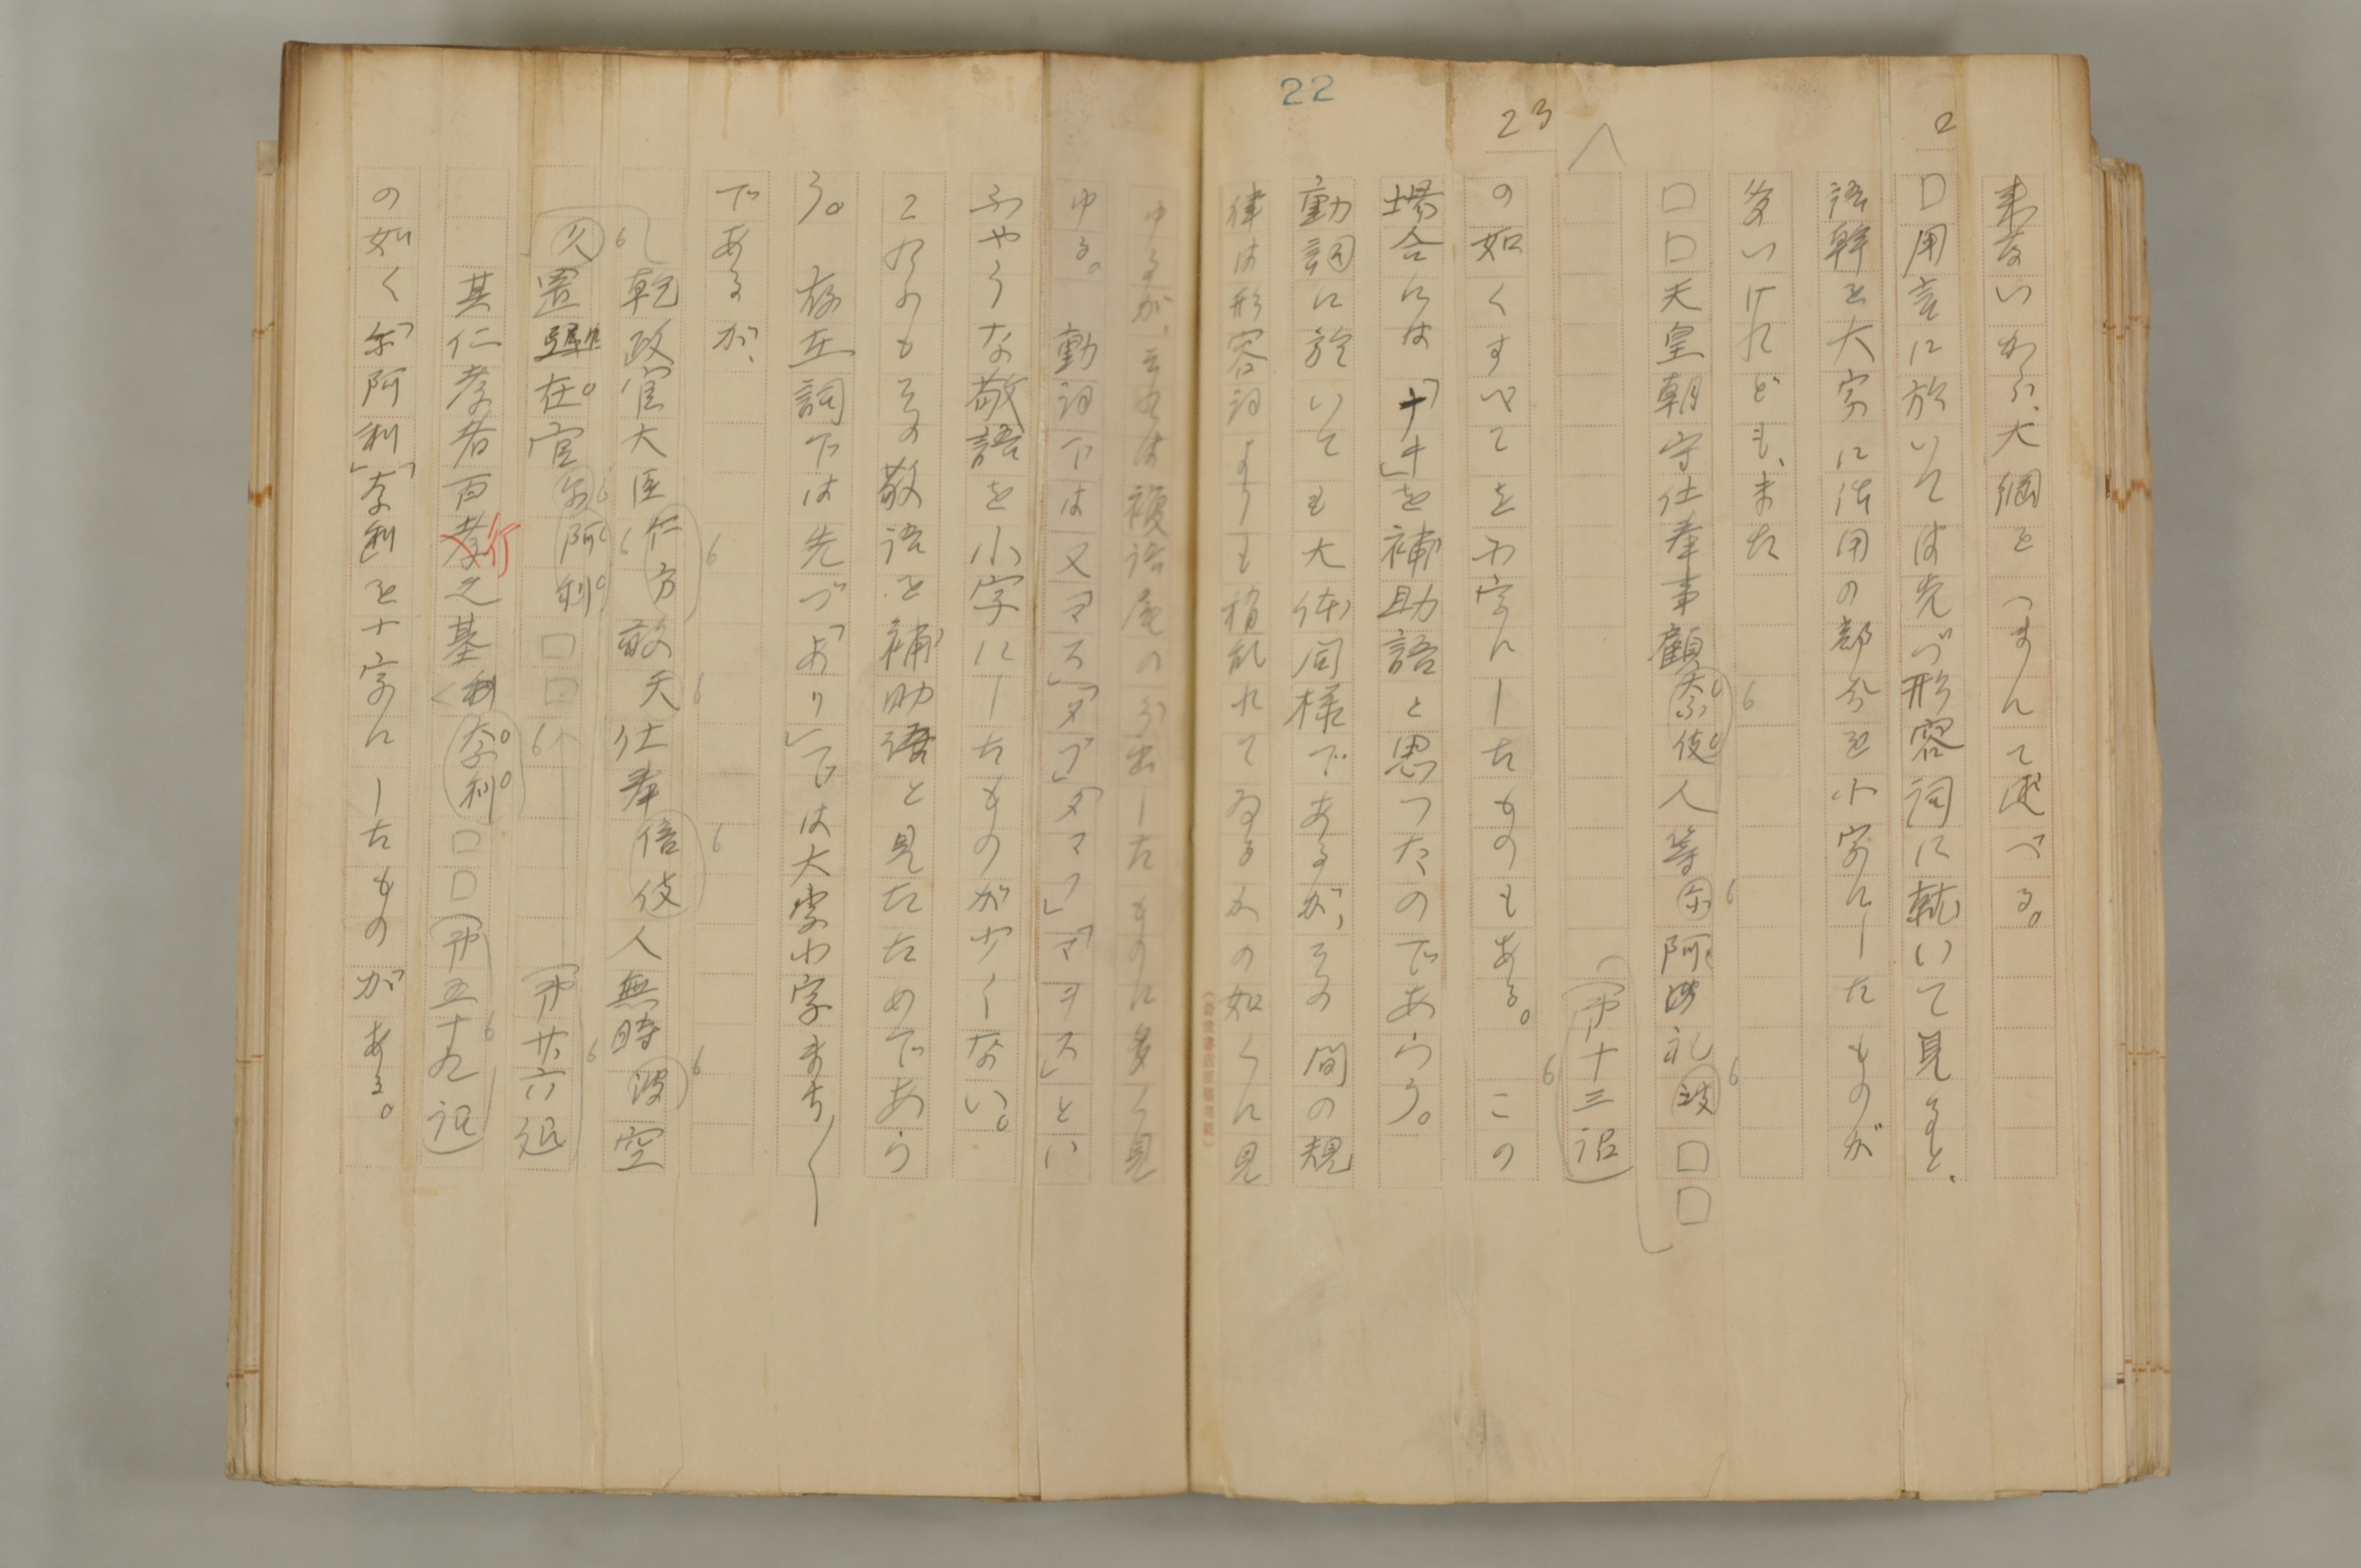 22
来ないから、大綱をつまんで述べる。
2
□用言に於いては先づ形容詞に就いて見ると、
語幹を大字に活用の部分を小字にしたものが
多いけれども、また
□□天皇朝守仕奉事顧奈伎人等尓阿礼波□□
(第十三詔)
23
の如くすべてを小字にしたものもある。この
場合には「ナキ」を補助語と思つたのであらう。
動詞に於いても大体同様であるが、その間の規
律は形容詞よりも稍乱れてゐるかの如くに見
ゆるが、それは複語尾の分出したものに多く見
ゆる。動詞では又「マス」「タブ」「タマフ」「マヲス」とい
ふやうな敬語を小字にしたものが少くない。
これらもその敬語を補助語と見たためであら
う。存在詞では先づ「あり」では大字小字まち〱
であるが、
乾政官大臣仁方敢天仕奉倍伎人無時波空
久置在官尓阿利□□(第廿六詔)
其仁孝者百行之基奈利□□(第五十九詔)
の如く「尓阿利」「奈利」を小字にしたものがある。